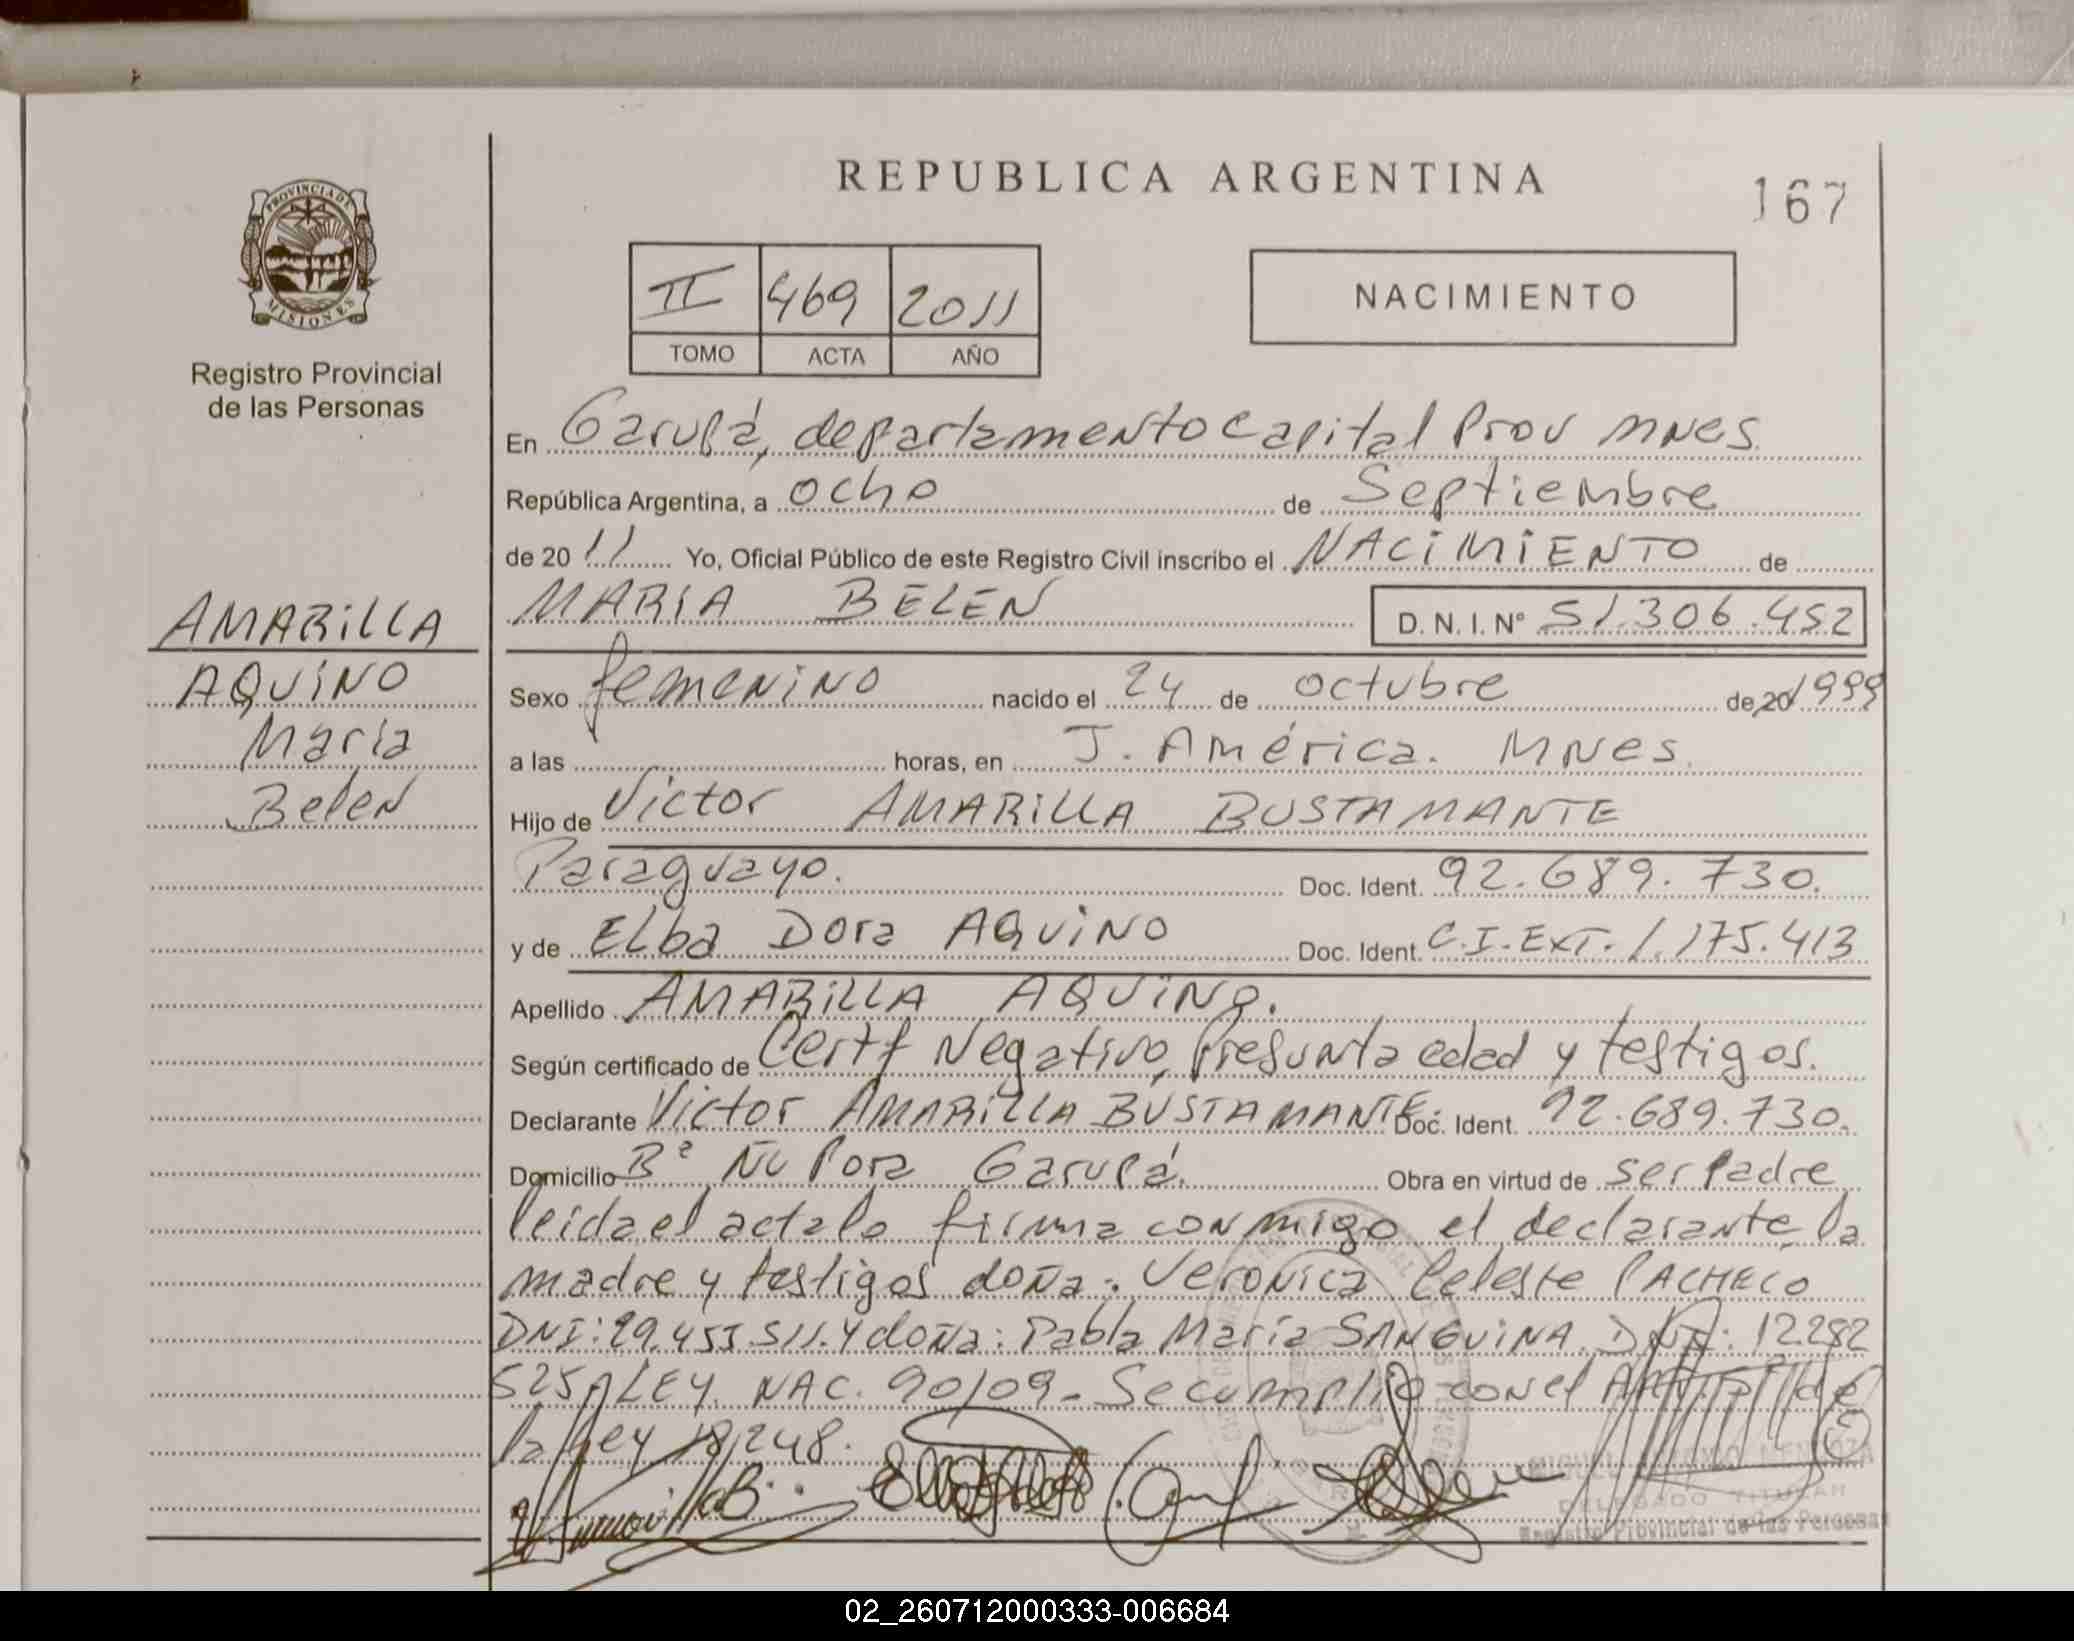 REPUBLICA ARGENTINA
167
PROVINCIA DE
MISIONES
Registro Provincial
de las Personas
II 469 2011
TOMO ACTA AÑO
NACIMIENTO
En Garupá, departamento Capital Prov Mnes.
República Argentina, a ocho de Septiembre
de 20 11 Yo, Oficial Público de este Registro Civil inscribo el NACIMIENTO de
MARIA BELEN D. N. I. N° 51.306.452
AMARILLA
AQUINO
Maria
Belen
Sexo femenino nacido el 24 de octubre de 20 1999
a las horas, en J. América. Mnes.
Hijo de Victor AMARILLA BUSTAMANTE
Paraguayo. Doc. Ident. 92.689.730.
y de Elba Dora AQUINO Doc. Ident. C.I. EXT. 1.175.413
Apellido AMARILLA AQUINO.
Según certificado de Certf Negativo, Presunta edad y testigos.
Declarante Victor AMARILLA BUSTAMANTE Doc. Ident. 92.689.730.
Domicilio Bº Ñu Pora Garupá. Obra en virtud de ser Padre
leida el acta la firma conmigo el declarante, la
madre y testigos doña: Veronica Celeste PACHECO
DNI: 29.453.511. Y doña: Pabla María SANGUINA. DNI: 12282
525 LEY. NAC. 90/09 - Se cumplio con el de
la ley 18.248.
DELEGADO TITULAR
Registro Provincial de las Personas
02_260712000333-006684